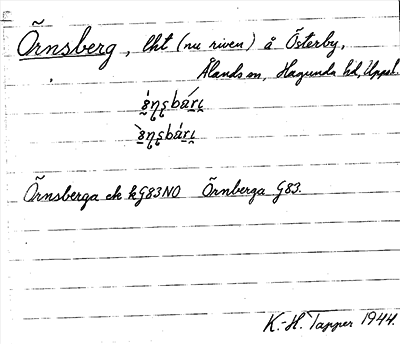 Örnsberg, lht (nu riven) å Österby,
Ålands sn, Hagunda hd, Uppsl.
Örnsberga ek kG83NO Örnberga G83.
K.-H. Tapper 1944.